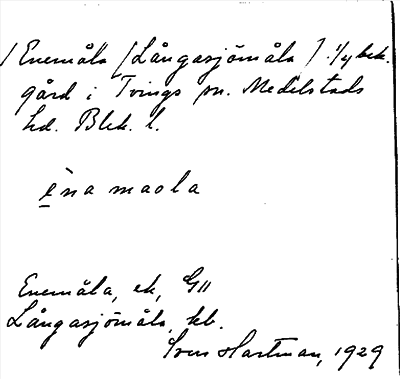 / Enemåla [Långasjömåla] 1/4 bek.
gård i Tvings sn. Medelstads
hd. Blek. l.
èna maola
Enemåla, ek, G11
Långasjömåla, kb.
Sven Hartman, 1929